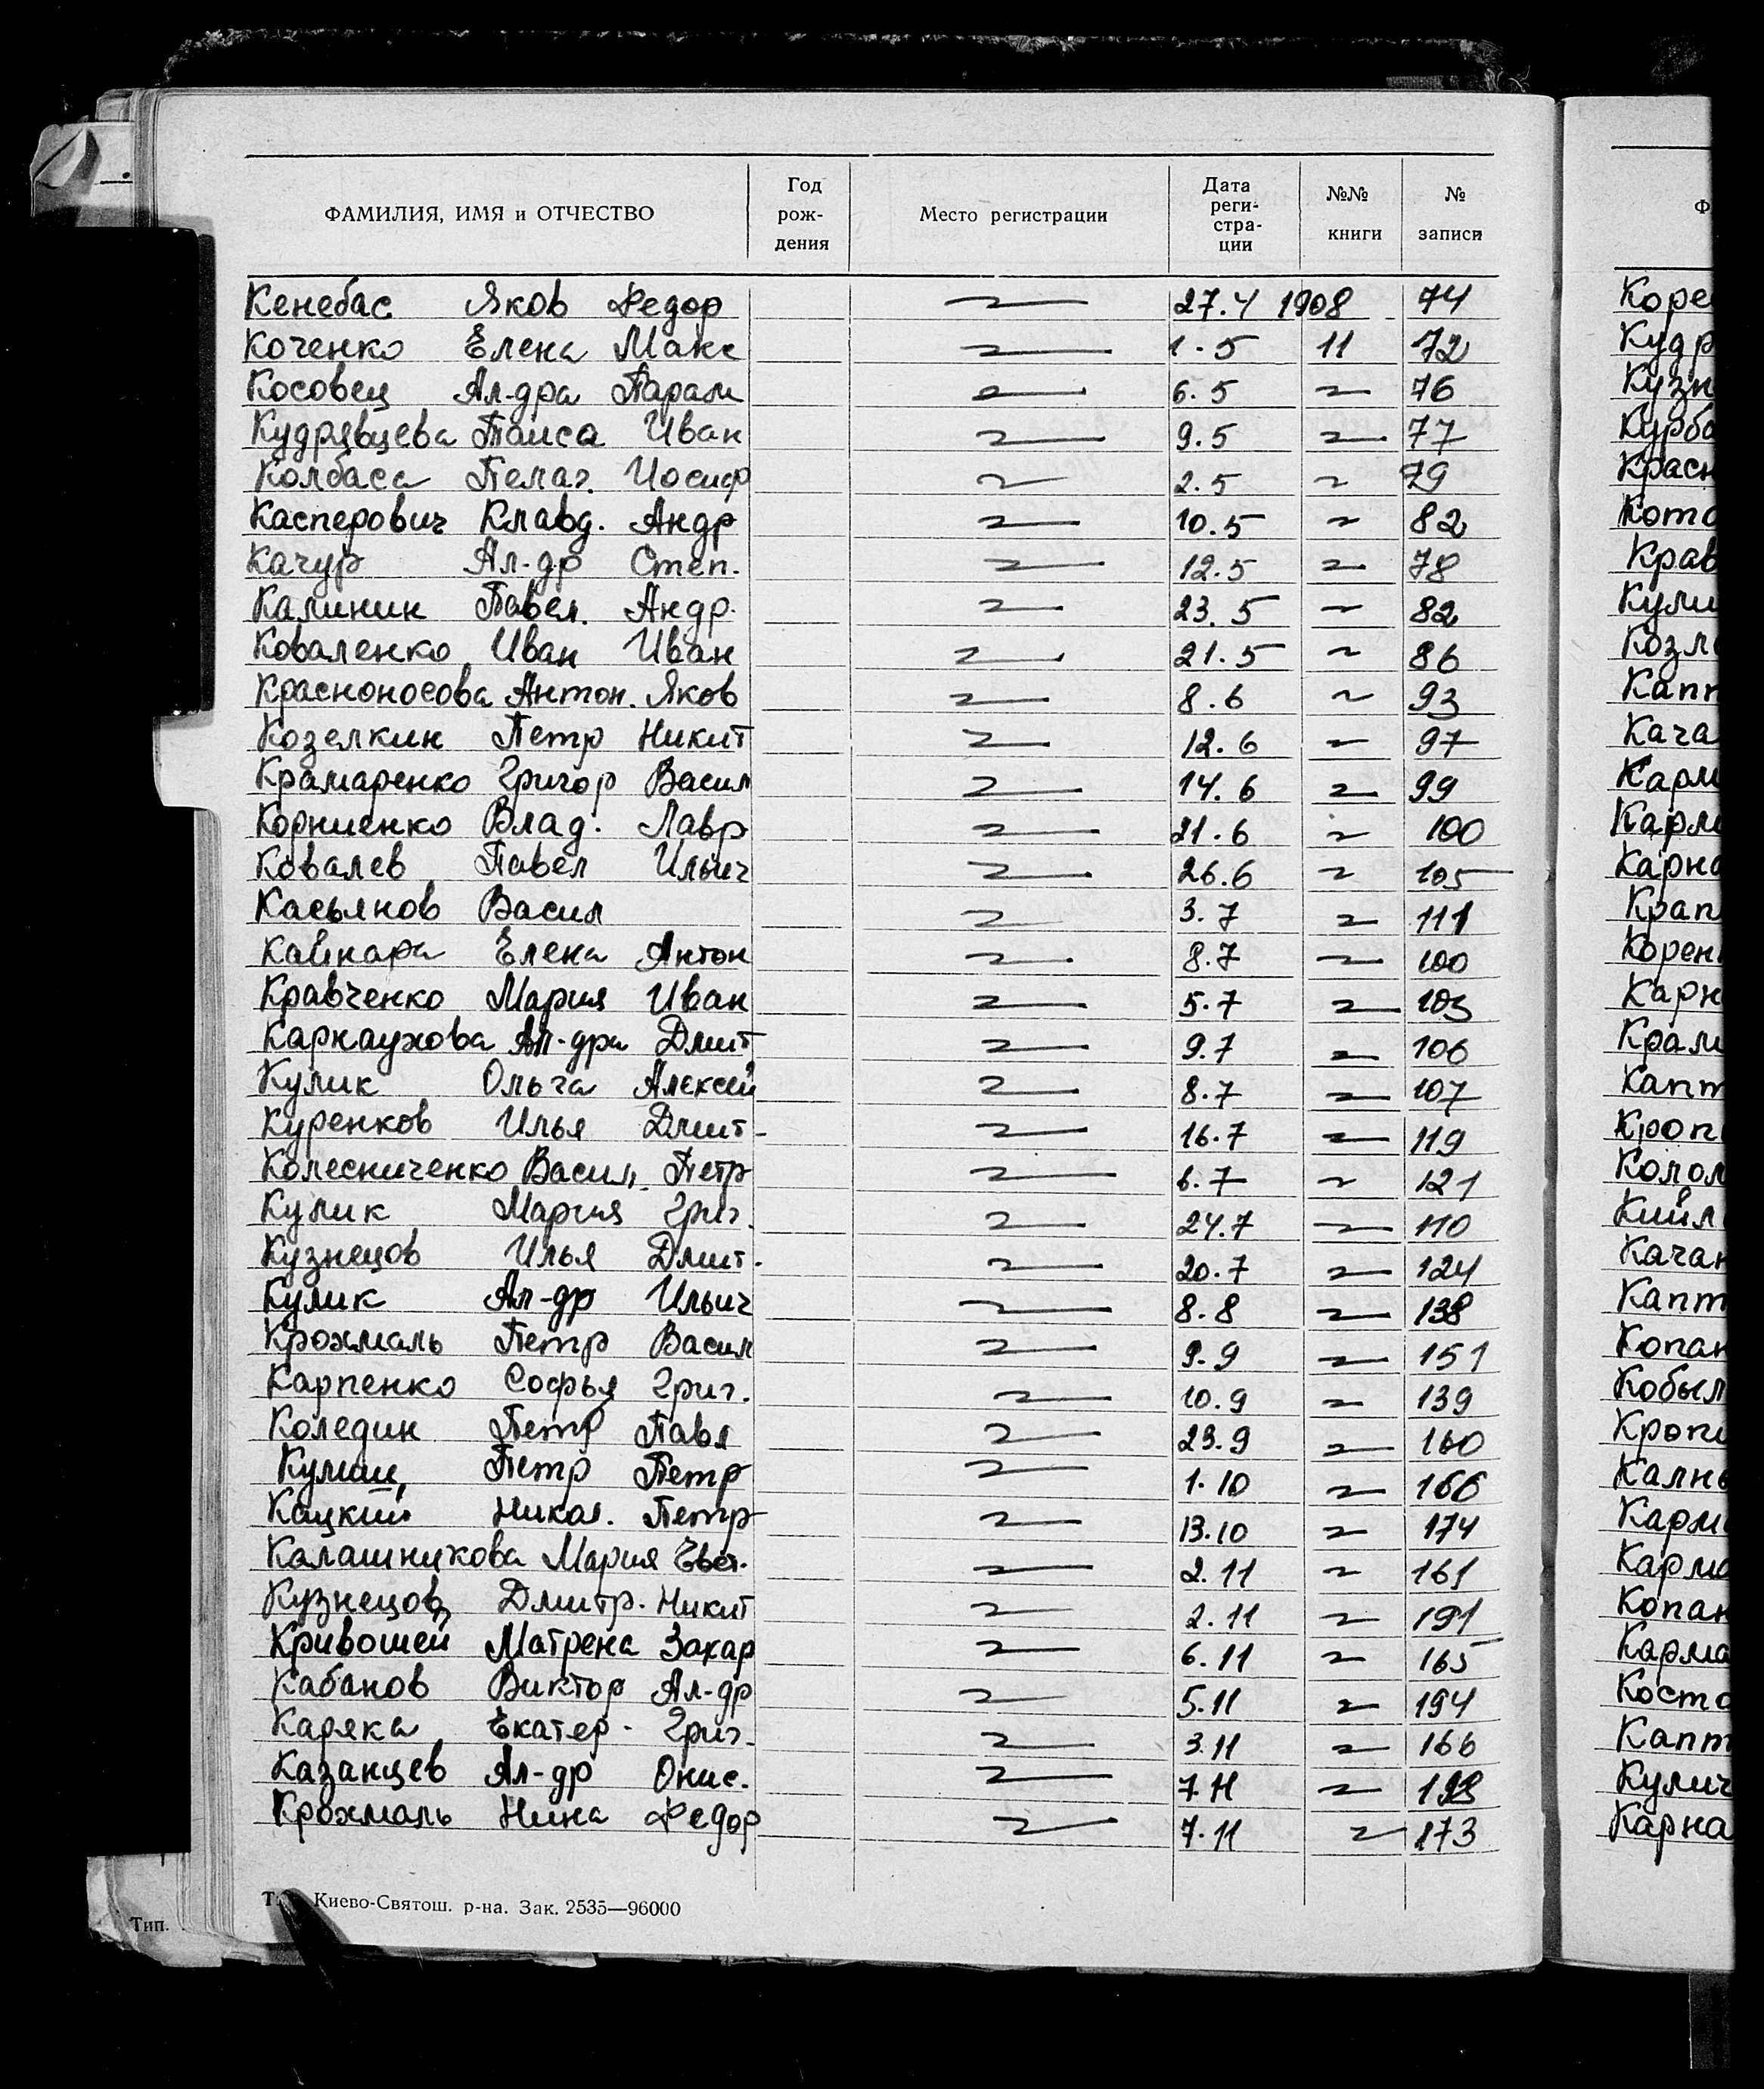 ФАМИЛИЯ, ИМЯ и ОТЧЕСТВО Год рож- дения Место регистрации Дата реги- стра- ции №№ книги № записи
Кенебас Яков Федор 27.4 1908 74
Коченко Елена Макс 1.5 11 72
Косовец Ал-дра Парам 6.5 76
Кудрявцева Таиса Иван 9.5 77
Колбаса Пелаг. Иосиф 2.5 79
Касперович Клавд. Андр 10.5 82
Качур Ал-др Степ. 12.5 78
Калинин Павел. Андр. 23.5 82
Коваленко Иван Иван 21.5 86
Красноносова Антон. Яков 8.6 93
Козелкин Петр Никит 12.6 97
Крамаренко Григор Васил 14.6 99
Корниенко Влад. Лавр 21.6 100
Ковалев Павел Ильич 26.6 105
Касьянов Васил 3.7 111
Елена Антон 8.7 100
Кравченко Мария Иван 5.7 103
Карнаухова Ал-дра Дмит 9.7 106
Кулик Ольга Алексей 8.7 107
Куренков Илья Дмит- 16.7 119
Колесниченко Васил. Петр 6.7 121
Кулик Мария Григ. 24.7 110
Кузнецов Илья Дмит. 20.7 124
Кулик Ал-др Ильич 8.8 138
Крохмаль Петр Васил 9.9 151
Карпенко Софья Григ. 10.9 139
Коледин Петр Павл 23.9 160
Петр Петр 1.10 166
Кацкий Никол. Петр 13.10 174
Калашникова Мария 2.11 161
Кузнецов Дмитр. Никит 2.11 191
Кривошей Матрена Захар 6.11 165
Кабанов Виктор Ал-др 5.11 194
Каряка Екатер. Григ. 3.11 166
Казанцев Ал-др Онис. 7.11
Крохмаль Нина Федор 7.11 173
Киево-Святош. р-на. Зак. 2535—96000
Тип.
Ф
Коре
Кудр
Кузн
Курба
Красн
Кото
Крав
Кули
Козл
Капт
Кача
Карм
Карм
Карна
Крап
Корен
Карн
Крам
Капт
Кроп
Колом
Качан
Капт
Копан
Кобыл
Кропи
Калн
Карм
Карма
Копан
Карма
Косто
Капт
Кулич
Карна